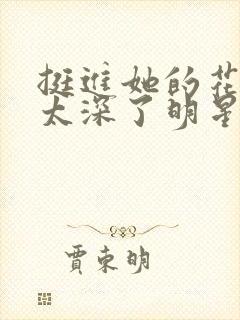 挺进她的花
太深了明星
贾东明